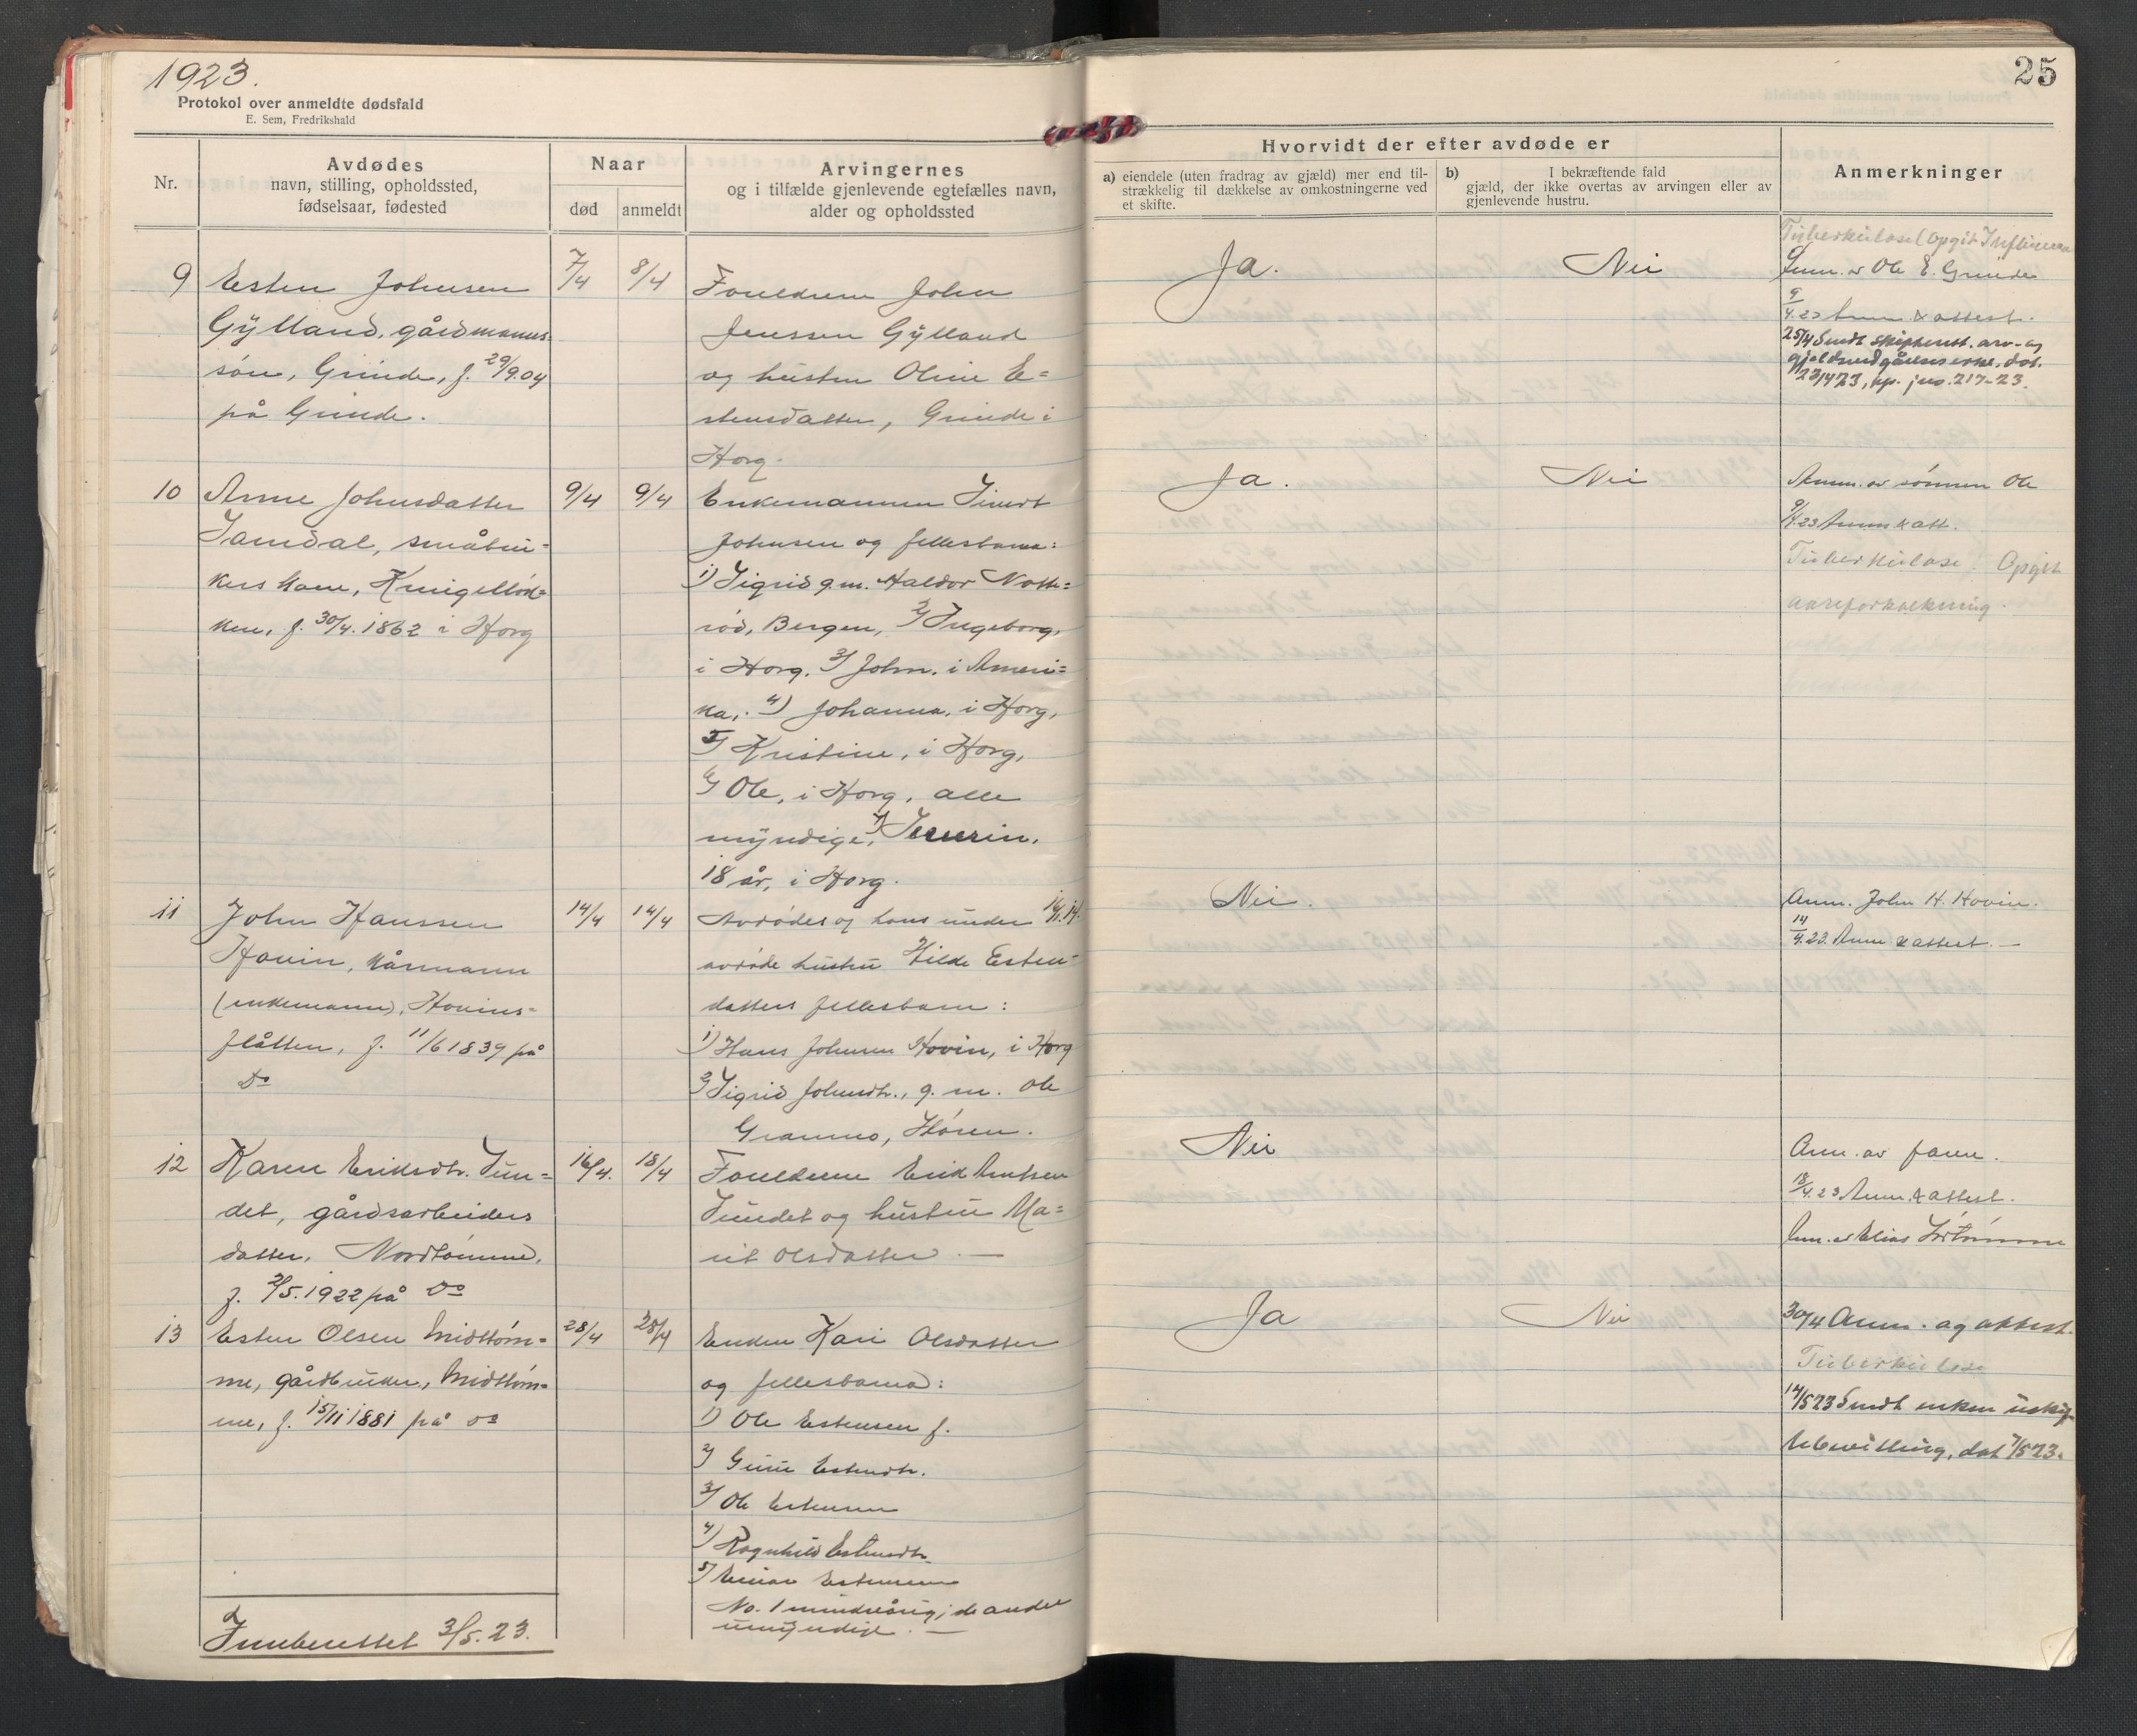 1923.
Protokol over anmeldte dødsfald
E. Sem, Fredrikshald
Nr.
Avdødes
navn, stilling, opholdssted,
fødselsaar, fødested
Naar
død
anmeldt
Arvingernes
og i tilfælde gjenlevende egtefælles navn,
alder og opholdssted
9
Esten Johnsen
Gylland, gårdmanns-
søn, Grinde, f. 29/9.04
på Grinde.
7/4
8/4
Foreldrene John
Jenssen Gylland
og hustru Oline E=
stensdatter, Grinde i
Horg.
10
Anne Johnsdatter
Samdal, småbru=
kers kone,
f. 30/4.1862 i Horg
9/4
9/4
Enkemannen Sivert
Johnsen og fellesbarna:
1) Sigrid g.m. Haldor Notte=
rød, Bergen, 2) Ingeborg,
i Horg. 3) John, i Ameri=
ka, 4) Johanna, i Horg,
5) Kristine, i Horg,
6) Ole, i Horg, alle
myndige, 7)
18 år, i Horg.
11
John Hanssen
Hovin, kårmann
(enkemann), Hovins=
flåtten, f. 11/6 1839 på
Do
14/4
14/4
Avdødes og hans under
avdøde hustru Silde Esten=
datters fellesbarn:
1) Hans Johnsen Hovin, i Horg
2) Sigrid Johnsdtr., g. m. Ole
Gramno, Hölen.
12
Karen Eriksdtr. Sun=
det, gårdsarbeiders
datter, Nordtömme,
f. 2/5.1922 på Do
16/4.
18/4
Foreldrene Erik Arntsen
Sundet og hustru Ma=
rit Olsdatter. —
13
Esten Olsen Midttöm=
me, gårdbruker, Midttöm=
me, f. 15/11 1881 på do
28/4
28/4
Enken Kari Olsdatter
og fellesbarna:
1) Ole Estensen f.
2) Guru Estensdtr.
3) Ole Estensen
4) Ragnhild Estensdtr.
5) Einar Estensen
No. 1 mindreårig, de andre
umyndige. —
Innberettet 3/5.23.
25
Hvorvidt der efter avdøde er
a) eiendele (uten fradrag av gjæld) mer end til-
strækkelig til dækkelse av omkostningerne ved
et skifte.
b) I bekræftende fald
gjæld, der ikke overtas av arvingen eller av
gjenlevende hustru.
Anmerkninger
Ja.
Nei
Tuberkulose (Opgit Influensa
Anm. av Ole E. Grinde
9/4.23 Anm. & attest.
25/4 Sendt skifterett. arv- og
23/4 23, kp. jno. 217-23.
Ja.
Nei
Anm. av sönnen Ole
9/4.23 Anm. & att.
Tuberkulose! Opgit
aareforkalkning.
Nei.
Anm. John H. Hovin.
14/4.23. Anm & attest. —
Nei
Anm. av faren.
18/4.23 Anm. & attest.
Anm. av Elias
Ja
Nei
30/4 Anm. og attest.
Tuberkulose
14/5 23 Sendt enken uskif-
tebevilling, dat 7/5 23.